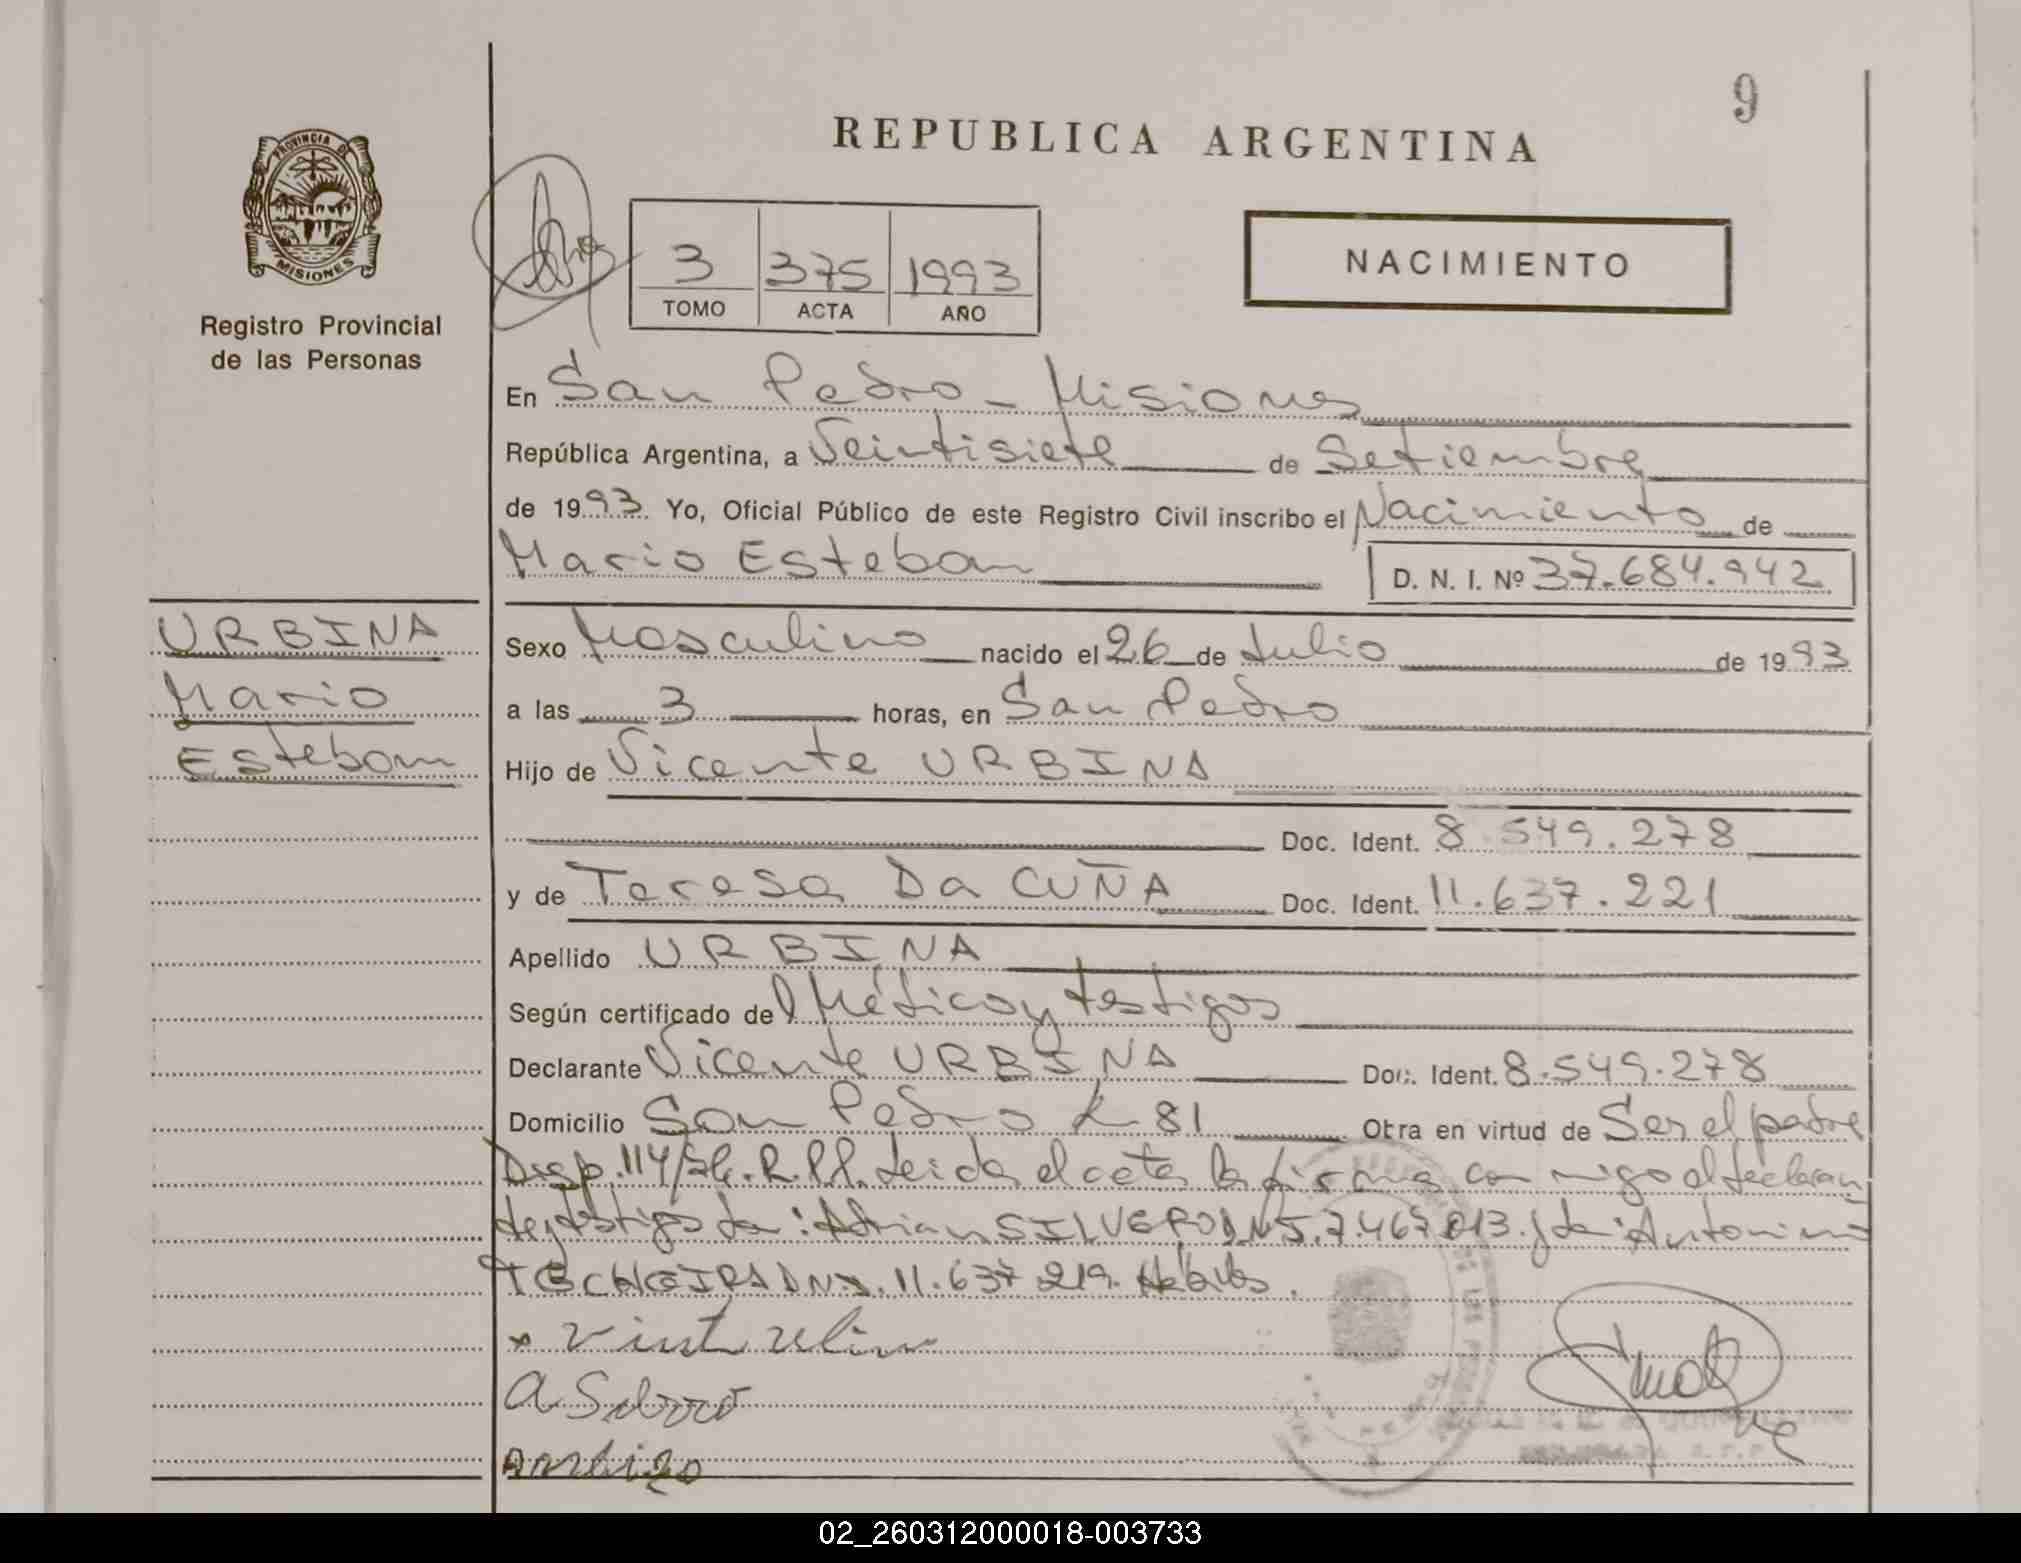 9
REPUBLICA ARGENTINA
PROVINCIA DE
MISIONES
Registro Provincial
de las Personas
3 375 1993
TOMO ACTA AÑO
NACIMIENTO
En San Pedro - Misiones
República Argentina, a Veintisiete de Setiembre
de 1993 Yo, Oficial Público de este Registro Civil inscribo el Nacimiento de
Mario Esteban D. N. I. Nº 37.684.942
URBINA
Mario
Esteban
Sexo Masculino nacido el 26 de Julio de 1993
a las 3 horas, en San Pedro
Hijo de Vicente URBINA
Doc. Ident. 8.549.278
y de Teresa Da CUÑA Doc. Ident. 11.637.221
Apellido URBINA
Según certificado del Médico y testigos
Declarante Vicente URBINA Doc. Ident. 8.549.278
Domicilio San Pedro K 81 Obra en virtud de Ser el padre
Disp. 114/ R.P.P. Leida el acta la firma conmigo el declaran
te y testigos : Adrian SILVERO DNI. 7.467.013. y Antonino
DNI. 11.637.219.
02_260312000018-003733